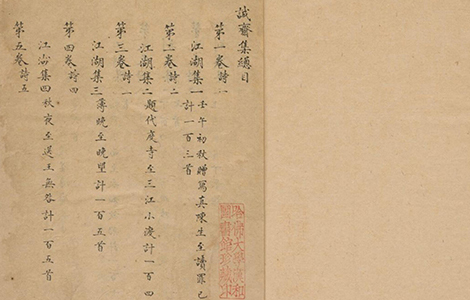 誠齋集總目
第一卷詩一
江湖集一 壬午初秋贈寫真陳生至讀罪己
計一百三首
第二卷詩二
江湖集二 題代度寺至三江小渡計一百四
第三卷詩三
江湖集三 薄晚至晚望計一百五首
第四卷詩四
江湖集四 秋夜至送王無咎計一百五首
第五卷詩五
哈佛大學漢和
圖書館珍藏印